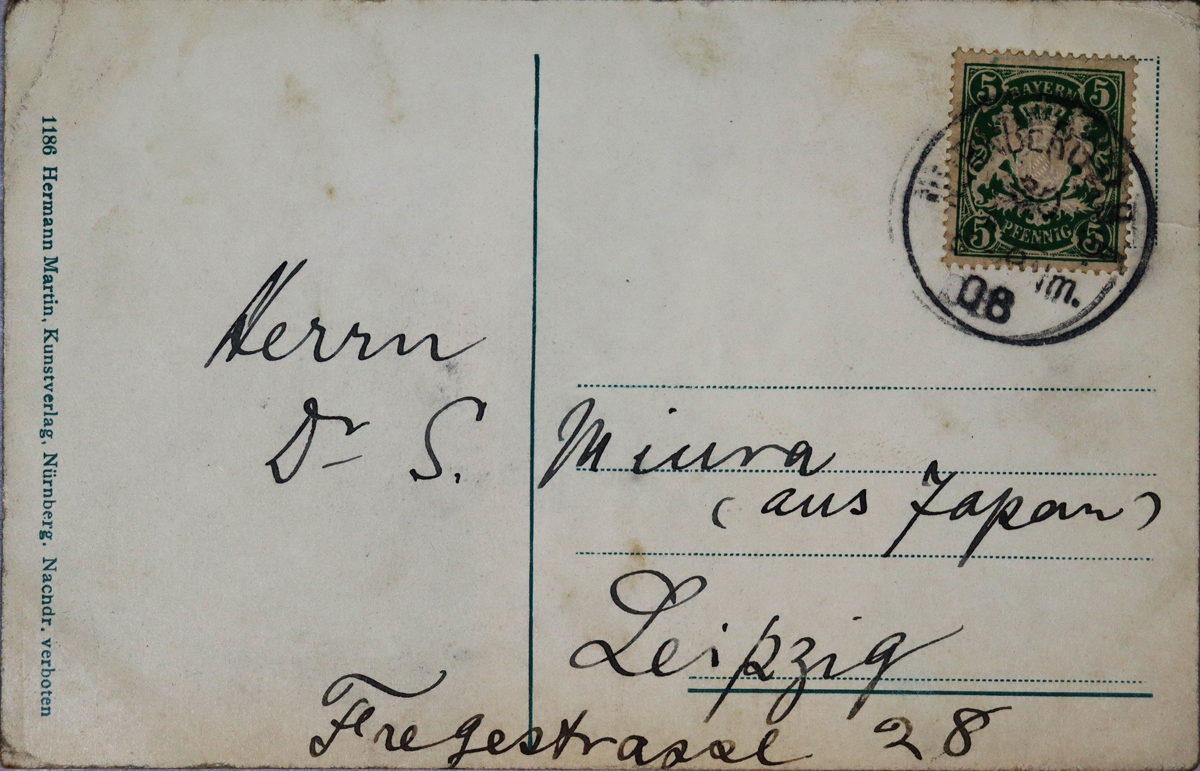 1186 Hermann Martin, Kunstverlag, Nürnberg. Nachdr. verboten
5 BAYERN 5
5 PFENNIG 5
08
Nm.
Herrn
Dr S. Miura
(aus Japan)
Leipzig
Fregestrasse 28